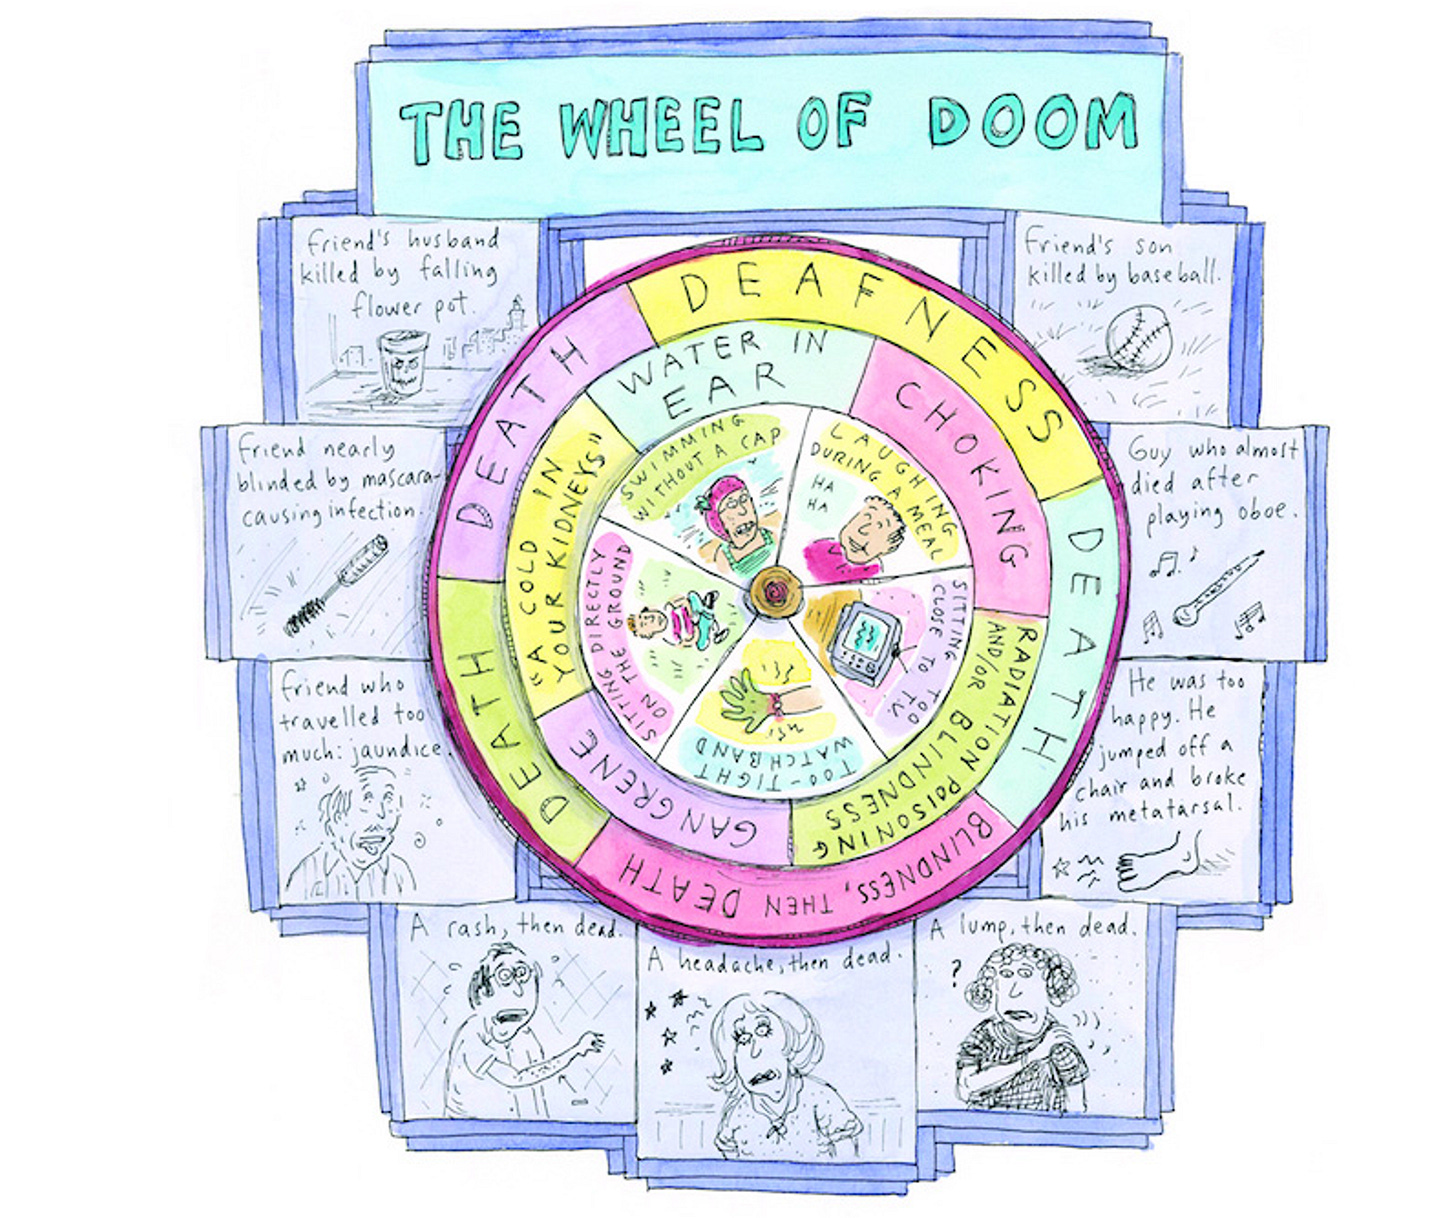 THE WHEEL OF DOOM
friend's husband
killed by falling
flower pot.
Friend's son
killed by baseball.
Friend nearly
blinded by mascara-
causing infection.
Guy who almost
died after
playing oboe.
friend who
travelled too
much: jaundice.
He was too
happy. He
jumped off a
chair and broke
his metatarsal.
A rash, then dead.
A headache, then dead.
A lump, then dead.
?
DEAFNESS
DEATH
BLINDNESS, THEN DEATH
DEATH
DEATH
WATER IN
EAR
CHOKING
RADIATION POISONING
AND/OR BLINDNESS
GANGRENE
"A COLD IN
YOUR KIDNEYS"
SWIMMING
WITHOUT A CAP
LAUGHING
DURING A MEAL
HA
HA
SITTING TOO
CLOSE TO T.V.
TOO-TIGHT
WATCHBAND
SITTING DIRECTLY
ON THE GROUND